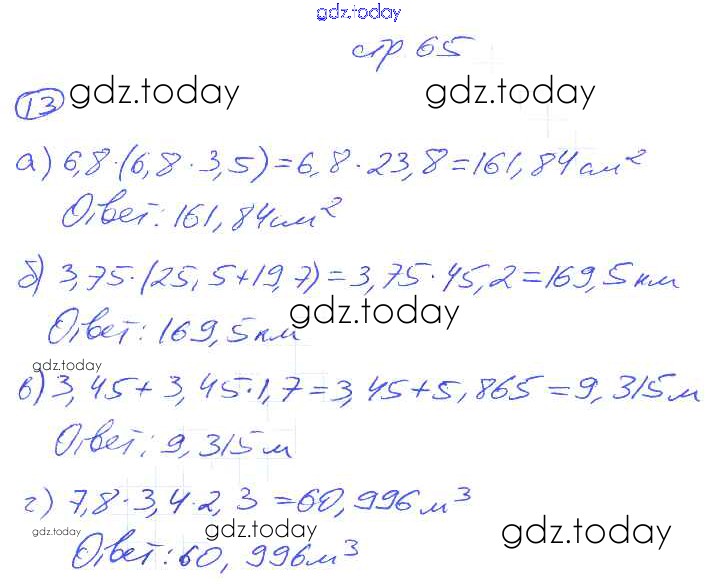 gdz.today
стр 65
13 gdz.today gdz.today
а) 6,8·(6,8·3,5)=6,8·23,8=161,84см²
Ответ: 161,84см²
б) 3,75·(25,5+19,7)=3,75·45,2=169,5км
gdz.today
Ответ: 169,5км
gdz.today
в) 3,45+3,45·1,7=3,45+5,865=9,315м
Ответ: 9,315м
г) 7,8·3,4·2,3=60,996м³
gdz.today gdz.today gdz.today
Ответ: 60,996м³